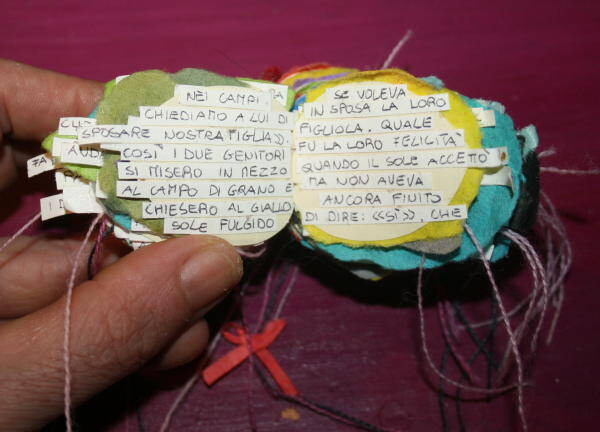 NEI CAMPI.
CHIEDIAMO A LUI DI
SPOSARE NOSTRA FIGLIA».
COSÌ I DUE GENITORI
SI MISERO IN MEZZO
AL CAMPO DI GRANO E
CHIESERO AL GIALLO
SOLE FULGIDO
SE VOLEVA
IN SPOSA LA LORO
FIGLIOLA. QUALE
FU LA LORO FELICITÀ
QUANDO IL SOLE ACCETTÒ
MA NON AVEVA
ANCORA FINITO
DI DIRE: «SÌ», CHE